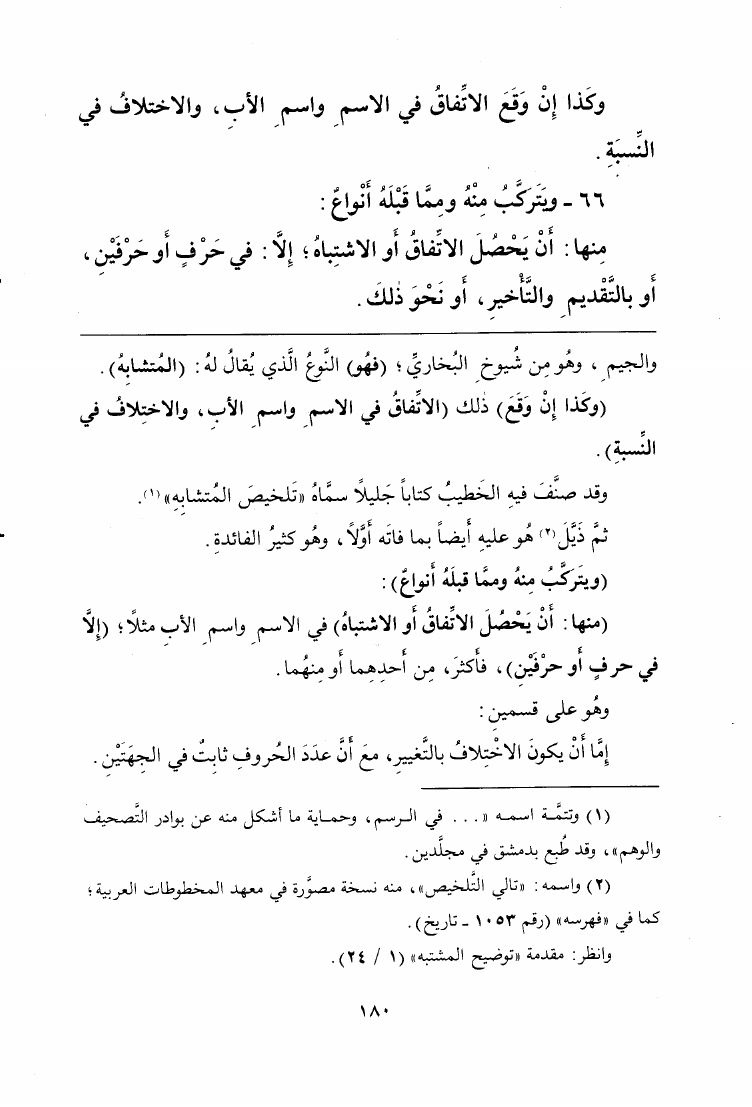 وكَذا إنْ وَقَعَ الاتِّفاقُ في الاسمِ واسمِ الأبِ، والاختلافُ في
النِّسبَةِ.
٦٦ ـ ويَتَركَّبُ مِنْهُ ومِمَّا قَبْلَهُ أَنْواعٌ:
مِنها: أَنْ يَحْصُلَ الاتِّفاقُ أَو الاشتِباهُ؛ إلَّا: في حَرْفٍ أَو حَرْفَيْنِ،
أَو بالتَّقْديمِ والتَّأْخيرِ، أَو نَحْوَ ذلكَ.
والجيمِ، وهُو مِن شُيوخِ البُخاريِّ؛ (فهُو) النَّوعُ الَّذي يُقالُ لهُ: (المُتشابِهُ).
(وكَذا إنْ وَقَعَ) ذلك (الاتِّفاقُ في الاسمِ واسمِ الأبِ، والاختِلافُ في
النِّسبةِ).
وقد صنَّفَ فيهِ الخَطيبُ كتاباً جَليلاً سمَّاهُ «تَلخيصَ المُتشابِهِ»(١).
ثمَّ ذَيَّلَ(٢) هُو عليهِ أَيضاً بما فاتَه أَوَّلاً، وهُو كثيرُ الفائدةِ.
(ويتَركَّبُ منهُ وممَّا قبلَهُ أَنواعٌ):
(منها: أَنْ يَحْصُلَ الاتِّفاقُ أَو الاشتباهُ) في الاسمِ واسمِ الأبِ مثلاً؛ (إلَّا
في حرفٍ أَو حرْفَيْنِ)، فأَكثرَ، مِن أَحدِهِما أَو مِنهُما.
وهُو على قسمينِ:
إِمَّا أَنْ يكونَ الاخْتلافُ بالتَّغييرِ، معَ أَنَّ عدَدَ الحُروفِ ثابتٌ في الجِهَتَيْنِ.
(١) وتتمَّة اسمه «... في الرسم، وحماية ما أشكل منه عن بوادر التَّصحيف
والوهم»، وقد طُبع بدمشق في مجلَّدين.
(٢) واسمه: «تالي التَّلخيص»، منه نسخة مصوَّرة في معهد المخطوطات العربية؛
كما في «فهرسه» (رقم ١٠٥٣ ـ تاريخ).
وانظر: مقدمة «توضيح المشتبه» (١ / ٢٤).
١٨٠